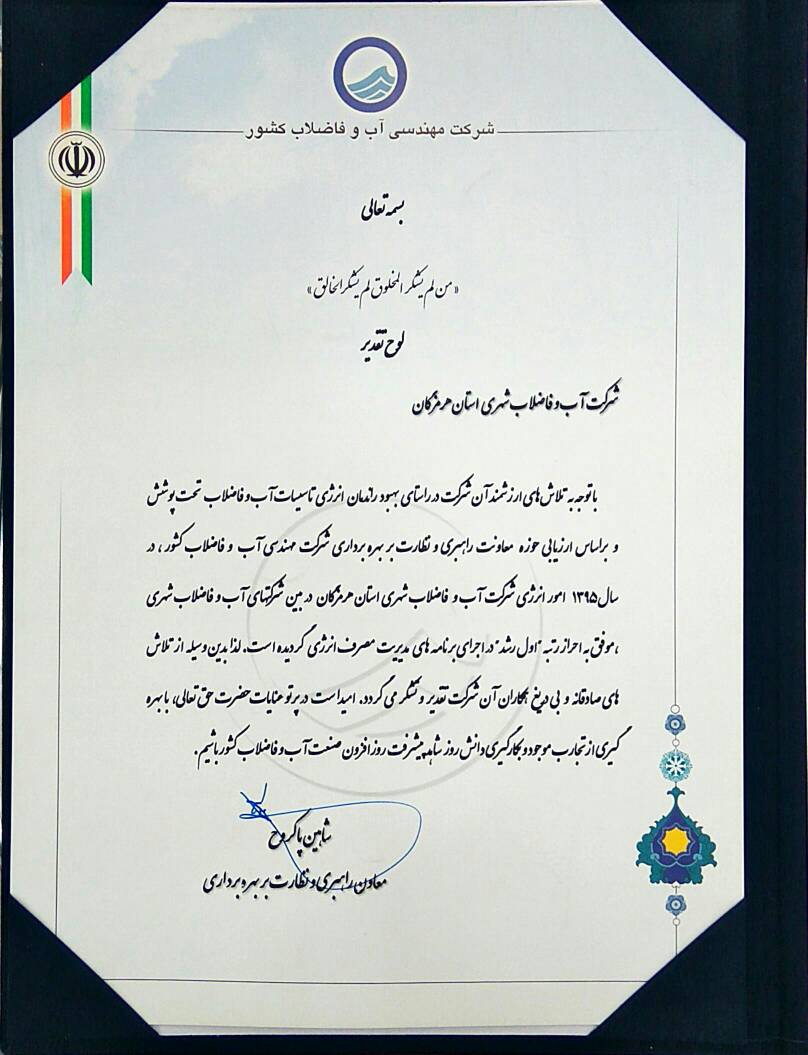 شرکت مهندسی آب و فاضلاب کشور
بسمه تعالی
«من لم یشکر المخلوق لم یشکر الخالق»
لوح تقدیر
شرکت آب و فاضلاب شهری استان هرمزگان
باتوجه به تلاش های ارزشمند آن شرکت در راستای بهبود راندمان انرژی تاسیسات آب و فاضلاب تحت پوشش
و براساس ارزیابی حوزه معاونت راهبری و نظارت بر بهره برداری شرکت مهندسی آب و فاضلاب کشور ، در
سال ۱۳۹۵ امور انرژی شرکت آب و فاضلاب شهری استان هرمزگان در بین شرکتهای آب و فاضلاب شهری
،موفق به احراز رتبه "اول رشد" در اجرای برنامه های مدیریت مصرف انرژی گردیده است. لذا بدین وسیله از تلاش
های صادقانه و بی دریغ همکاران آن شرکت تقدیر و تشکر می گردد. امید است در پرتو عنایات حضرت حق تعالی، با بهره
گیری از تجارب موجود و بکارگیری دانش روز شاهد پیشرفت روز افزون صنعت آب و فاضلاب کشور باشیم.
شاهین پاکروح
معاون راهبری و نظارت بر بهره برداری